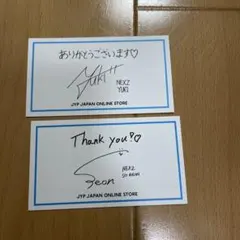 ありがとうございます♡
Yuki!!
NEXZ
YUKI
JYP JAPAN ONLINE STORE
Thank you!♡
Seon
NEXZ
JYP JAPAN ONLINE STORE